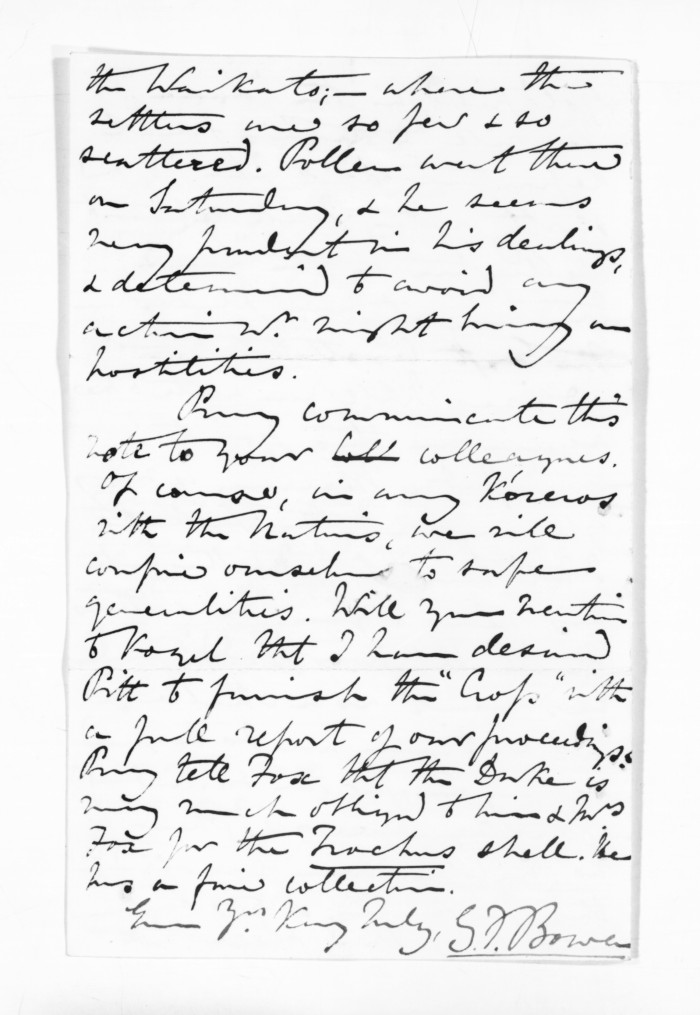 the Waikato; — where the
settlers are so few & so
scattered. Pollen went there
on Saturday, & he seems
very prudent in his dealings,
& determined to avoid any
action wh. might bring on
hostilities.
Pray communicate this
note to your coll colleagues.
Of course, in any Kóreros
with the Natives, we will
confine ourselves to safe
generalities. Will you mention
to Vogel tht I have desired
Pitt to furnish the "Cross" with
a full report of our proceedings.
Pray tell Fox tht the Duke is
very much obliged to him & Mrs
Fox for the Trochus shell. He
has a fine collection.
Ever Yrs very truly, G. F. Bowen